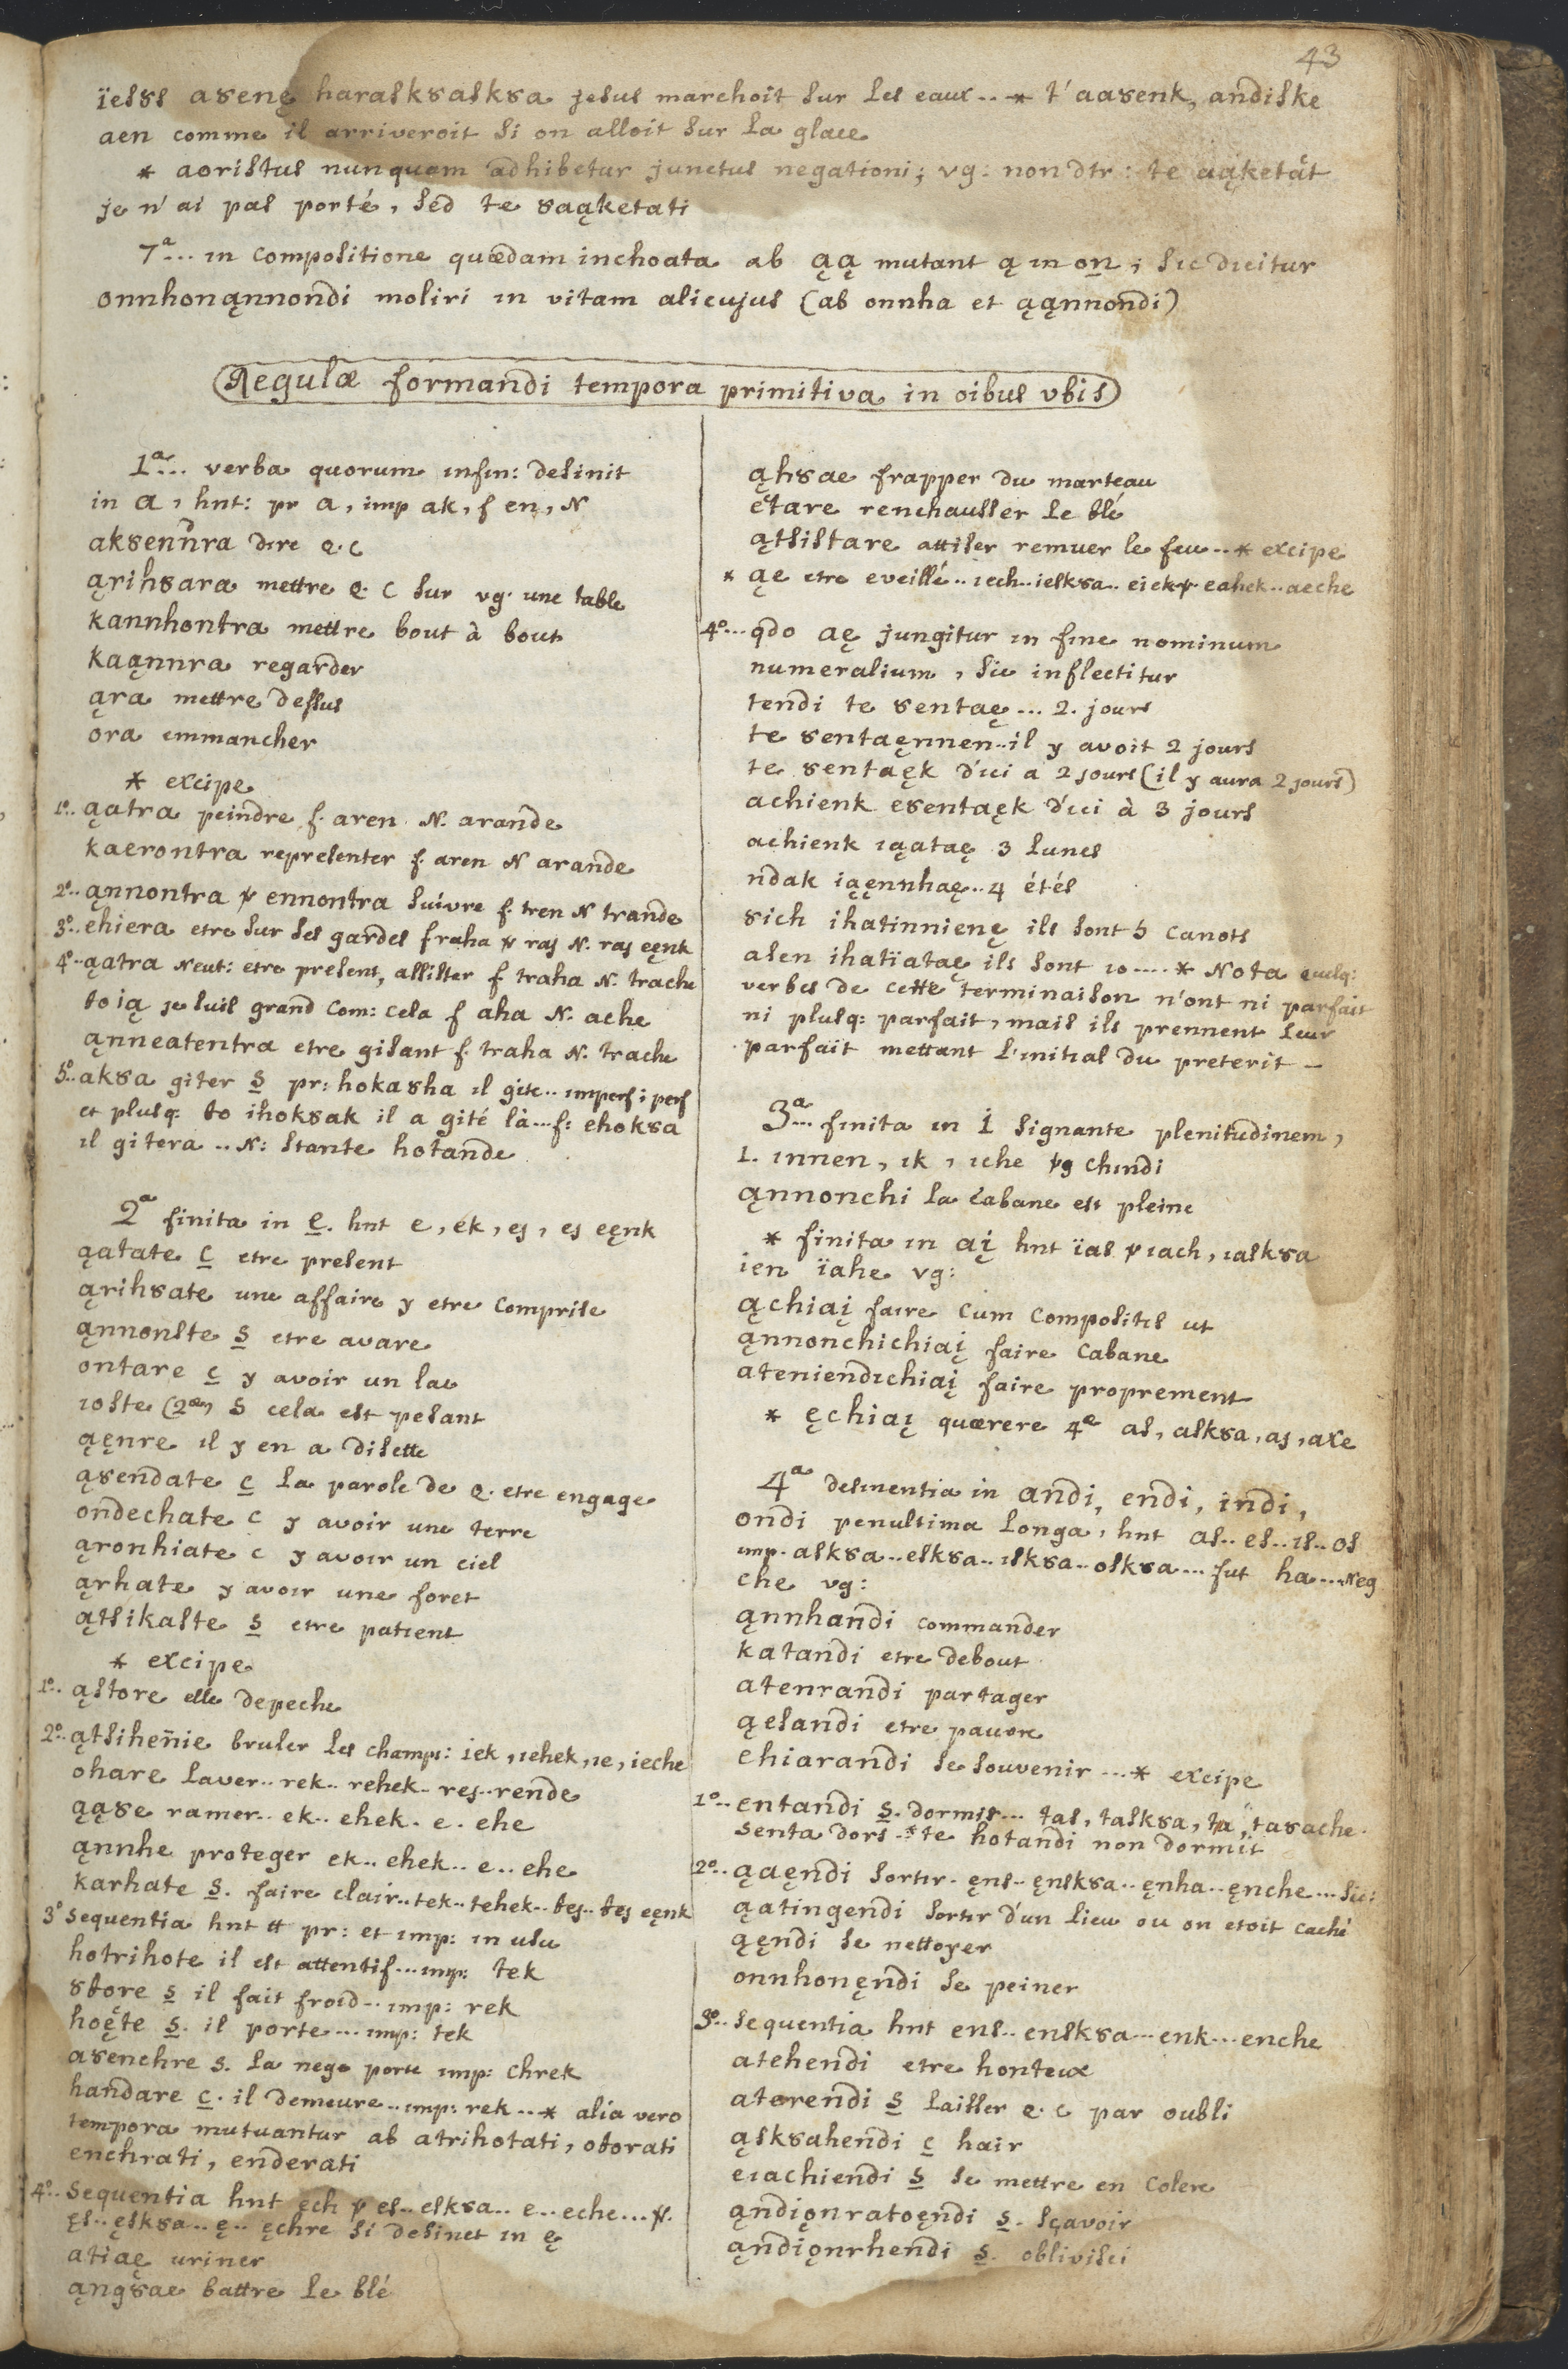 43
ïesȣs aȣenę haraskȣaskȣa jesus marchoit sur les eaux .. * t'aaȣenk, andiske
aen comme il arriveroit si on alloit sur la glace
* aoristus nunquam adhibetur junctus negationi; vg: non dtr: te aąketat
je n'ai pas porté, sed te ȣaąketati
7ª... in compositione quædam inchoata ab ąą mutant ą in on; sic dicitur
onnhonąnnondi moliri in vitam alicujus (ab onnha et ąąnnondi)
Regulæ formandi tempora primitiva in oibus vbis
1ª... verba quorum infin: desinit
in a, hnt: pr a, imp ak, f en, N
akȣennra dire q. c
ąrihȣara mettre q. c sur vg. une table
kannhontra mettre bout à bout
kaąnnra regarder
ąra mettre dessus
ora emmancher
* excipe
1º.. ąatra peindre f. aren N. arande
kaerontra representer f. aren N arande
2º.. ąnnontra ѱ ennontra suivre f. tren N trande
3º.. ehiera etre sur ses gardes f raha ѱ raj N. raj eęnk
4º.. ąatra Neut: etre present, assister f traha N. trache
to ią je suis grand com: cela f aha N. ache
ąnneatentra etre gisant f. traha N. trache
5º.. akȣa giter S pr: hokaȣha il gite .. imperf: perf
et plusq: to ihokȣak il a gité là ... f: ehokȣa
il gitera .. N: stante hotande
2ª finita in e. hnt e, ek, ej, ej eęnk
ąatate C etre present
ąrihȣate une affaire y etre comprise
ąnnonste S etre avare
ontare C y avoir un lac
ioste (2æ) S cela est pesant
ąęnre il y en a disette
ąȣendate C la parole de q. etre engage
ondechate C y avoir une terre
ąronhiate C y avoir un ciel
ąrhate y avoir une foret
ątsikaste S etre patient
* excipe
1º.. ąstore elle depeche
2º.. ątsihenie bruler les champs: iek, iehek, ie, ieche
ohare laver .. rek .. rehek .. rej .. rende
ąąȣe ramer .. ek .. ehek . e . ehe
ąnnhe proteger ek .. ehek .. e .. ehe
karhate S. faire clair .. tek .. tehek .. tej .. tej eęnk
3º sequentia hnt tt pr: et imp: in usu
hotrihote il est attentif ... imp: tek
ȣtore S il fait froid .. imp: rek
hoęte S. il porte ... imp: tek
aȣenchre S. la nege porte imp: chrek
handare C. il demeure .. imp: rek .. * alia vero
tempora mutuantur ab atrihotati, otorati
enchrati, enderati
4º.. Sequentia hnt ech ѱ es .. eskȣa .. e .. eche ... ѱ.
ęs .. ęskȣa .. ę .. ęchre si desinet in ę
atiaę uriner
ąngȣae battre le blé
ąhȣae frapper du marteau
etare renchausser le blé
ątsistare attiser remuer le feu .. * excipe
* ąe etre eveillé .. iech .. ieskȣa .. eiek ѱ eahek .. aeche
4º... qdo aę jungitur in fine nominum
numeralium, sic inflectitur
tendi te ȣentaę ... 2. jours
te ȣentaęnnen .. il y avoit 2 jours
te ȣentaęk d'ici a 2 jours (il y aura 2 jours)
achienk eȣentaęk d'ici à 3 jours
achienk iąataę 3 lunes
ndak iąęnnhaę .. 4 étés
ȣich ihatinnienę ils sont 5 canots
asen ihatiataę ils sont 10 .... * Nota quelq:
verbes de cette terminaison n'ont ni parfait
ni plusq: parfait, mais ils prennent leur
parfait mettant l'initial du preterit -
3ª... finita in i signante plenitudinem,
1. innen, ik, iche vg chindi
ąnnonchi la cabane est pleine
* finita in aį hnt ïas ѱ iach, iaskȣa
ien ïahe vg:
ąchiaį faire cum compositis ut
ąnnonchichiaį faire cabane
ateniendichiaį faire proprement
* ęchiaį quærere 4æ as, askȣa, aj, axe
4ª desinentia in andi, endi, indi,
ondi penultima longa, hnt as .. es .. is .. os
imp. askȣa .. eskȣa .. iskȣa .. oskȣa ... fut ha ... Neg
che vg:
ąnnhandi commander
katandi etre debout
atenrandi partager
ąesandi etre pauvre
ehiarandi se souvenir ... * excipe
1º.. entandi S. dormir ... tas, taskȣa, ta, taȣache.
senta dors .. * te hotandi non dormiit
2º.. ąaęndi sortir . ęns .. ęnskȣa .. ęnha .. ęnche ... sic:
ąatingendi sortir d'un lieu ou on etoit caché
ąęndi se nettoyer
onnhonęndi se peiner
3º.. sequentia hnt ens .. enskȣa ... enk ... enche
atehendi etre honteux
atorendi S laisser q. c par oubli
ąskȣahendi C hair
eiachiendi S se mettre en colere
ąndiǫnratoęndi S. sçavoir
ąndiǫnrhendi S. oblivisci